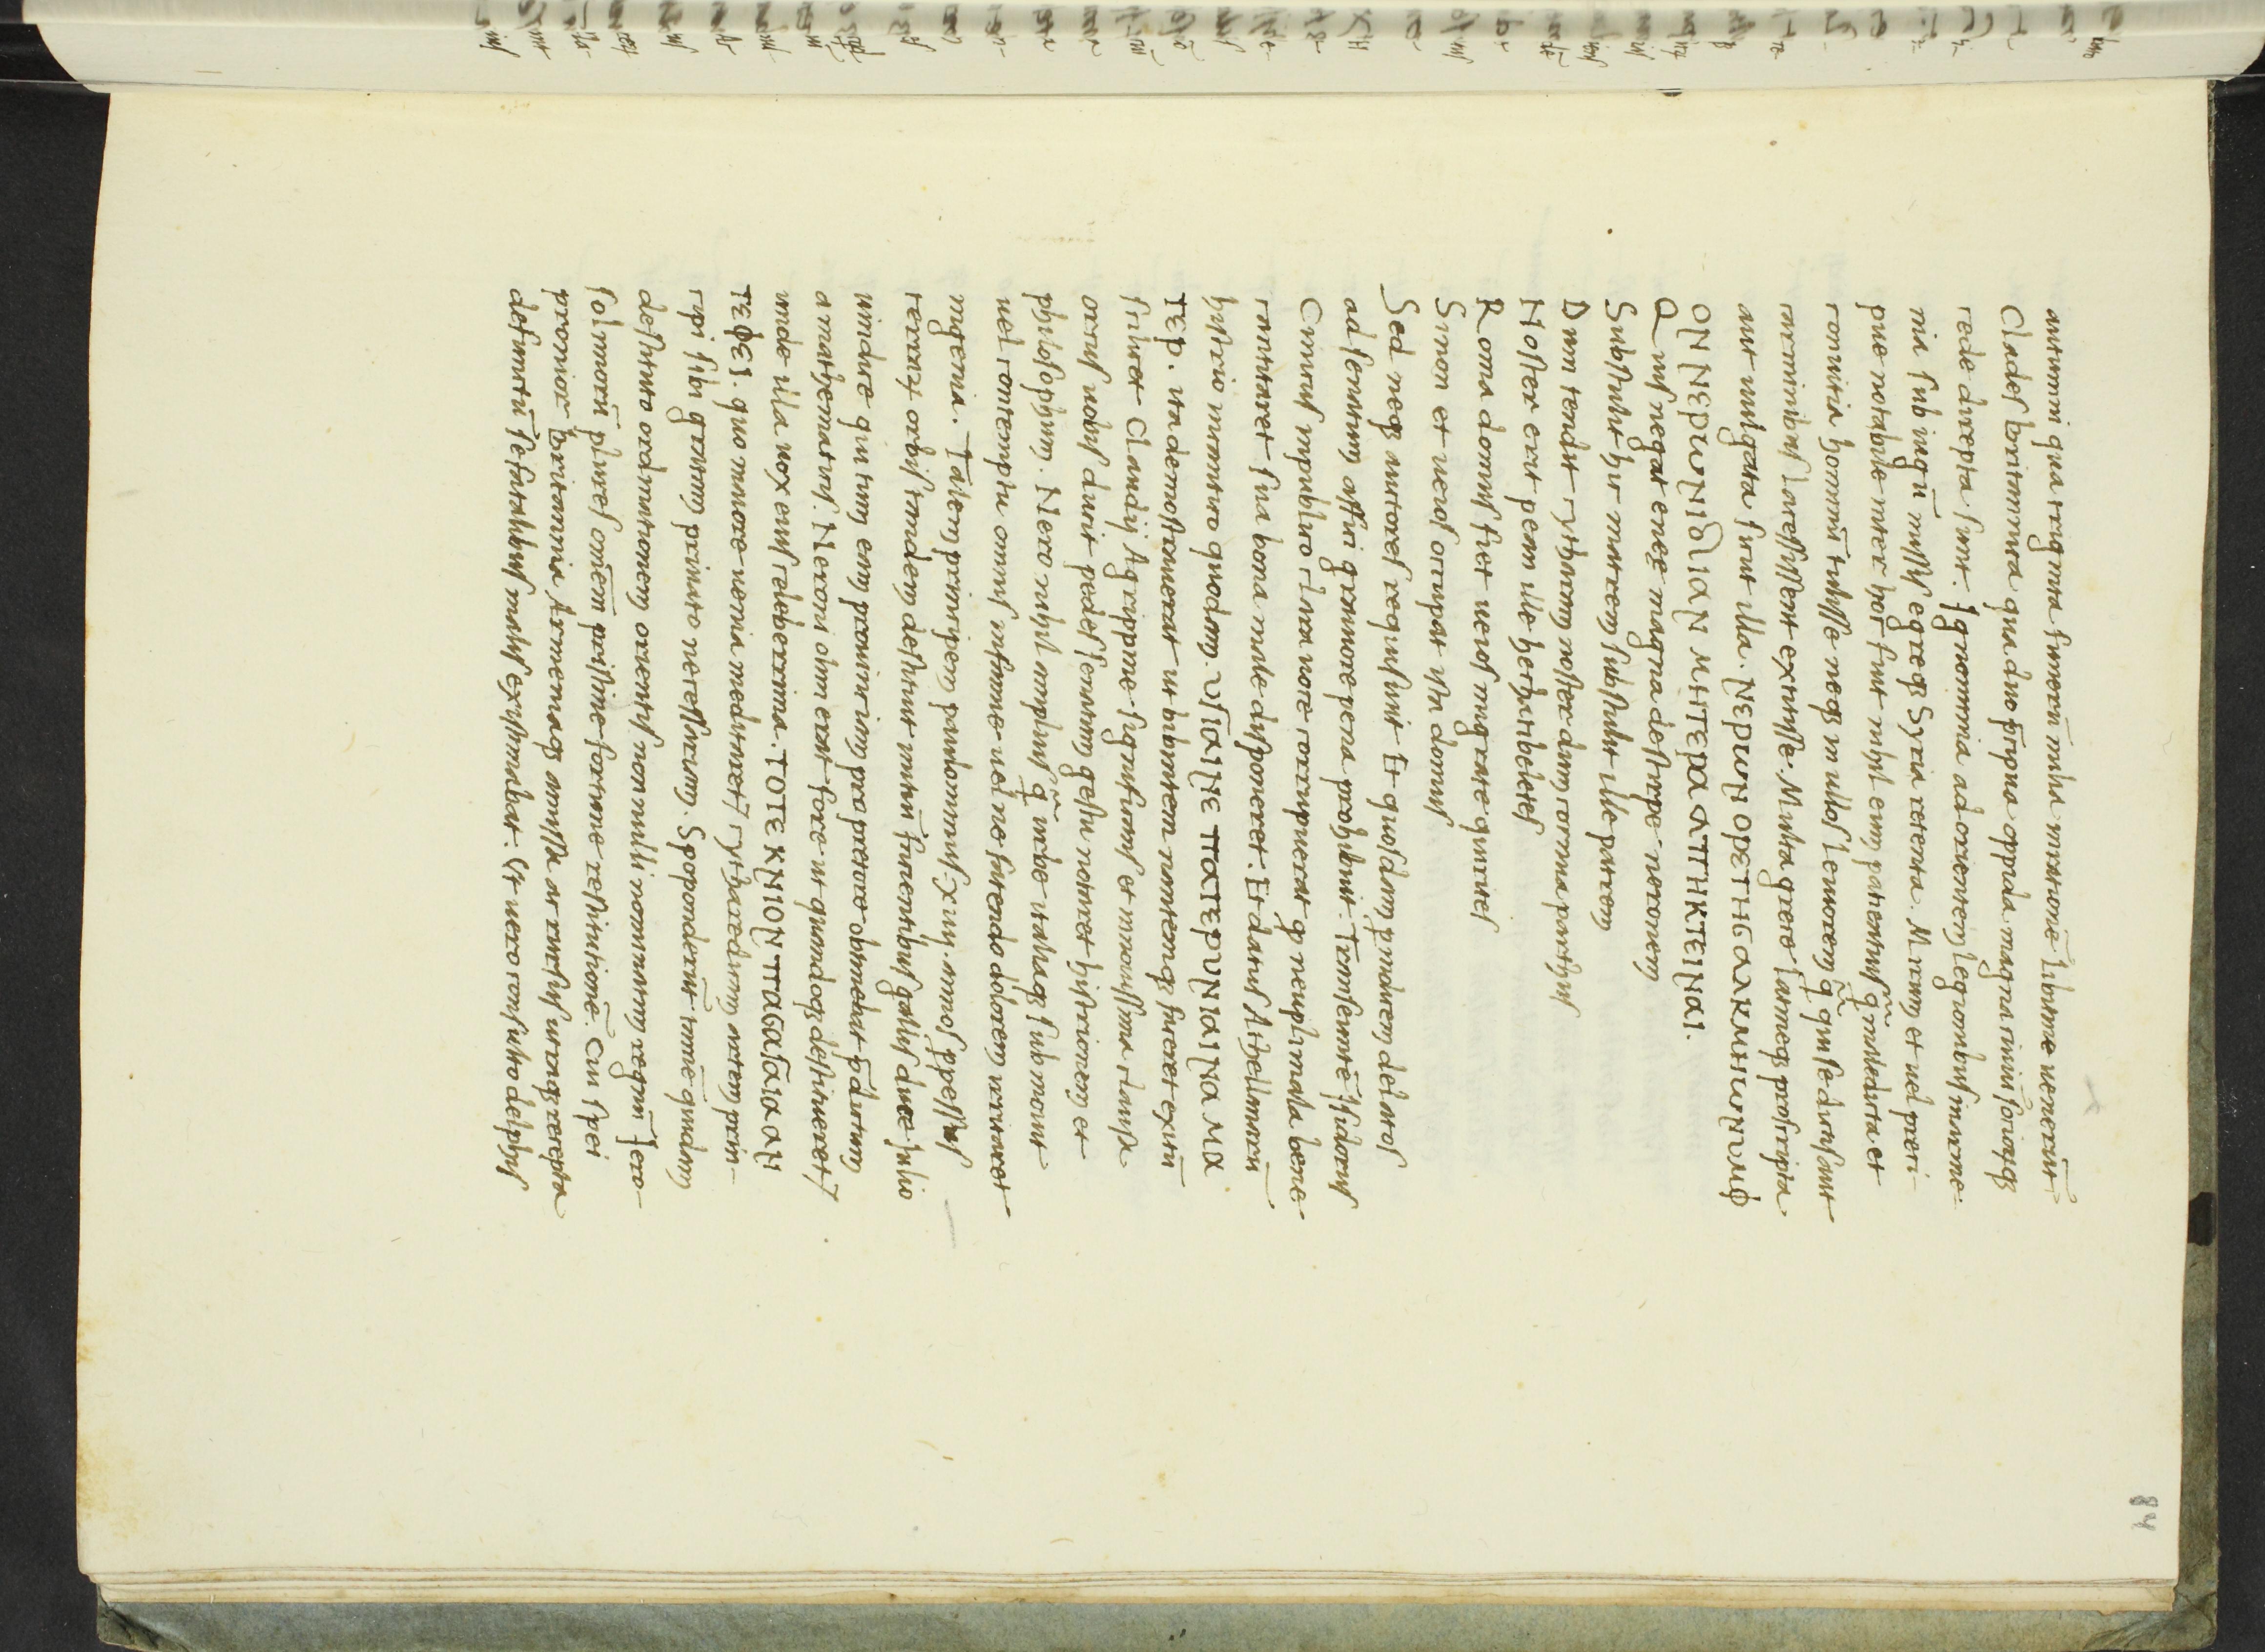 autumni qua trigīta funerū milia in rationē libitine uenerūt
Clades britannica qua duo p̄cipua oppida magna ciuiū socioꝝqꝫ
cede direpta sunt. Ignominia ad orientem legionibus in arme-
nia sub iugū missis egreqꝫ Syria retenta. Mirum et uel preci-
pue notabile inter hoc fuit nihil eum patientius q̃ maledicta et
conuitia hominū tulisse neqꝫ in ullos leuiorem q̃ qui se dictis aut
carminibus lacessissent extitisse. Multa grece latineqꝫ proscripta
aut uulgata sunt illa. ΝΕΡωΝ ΟΡΕΤΗϹ αΛΚΜΗωΝ
ΟΝ ΝΕΡωΝ ΙδΙαΝ ΜΗΤΕΡα αΠΗΚΤΕΙΝαΙ.
Quis negat enee magna de stirpe neronem
Substulit hic matrem substulit ille patrem
Dum tendit cytharam noster dum cornua parthus
Noster erit pean ille hecatibeletes
Roma domus fiet ueios migrate quirites
Si non et ueios occupat ista domus
Sed neqꝫ auctores requisiuit Et quosdam p indicem delatos
ad senatum affici grauiore pena prohibuit. Transeuntē Isidorus
Cinicus in publico clara uoce corripuerat qꝫ neupli mala bene
cantitaret sua bona male disponeret. Et datus Athellanarū
hystrio in cantico quodam. ΥΓΙαΙΝΕ ΠαΤΕΡ ΥΝΙαΙΝα ΜΑ
ΤΕΡ. ita demostrauerat ut bibentem natantemqꝫ faceret exitū
scilicet Claudij Agrippine significans et in nouissima clausula
orcus uobis ducit pedes senatum gestu notaret histrionem et
phylosophum. Nero nihil amplius q̃ urbe italiaqꝫ submouit
uel contemptu omnis infamie uel ne fatendo dolorem irritaret
ingenia. Talem principem paulominus .xiiij. annos ppessus
terraꝝ orbis tandem destituit initiū facientibus gallis duce Iulio
uindice qui tum eam prouinciam pro pretore obtinebat p̄dictum
a mathematicis. Neroni olim erat fore ut quandoqꝫ destitueret᷑
unde illa uox eius celeberrima. ΤΟΤΕΚΝΙΟΝ ΠαϹαΓαΙα αΝ
ΤΕΦΕΙ. quo maiore uenia meditaret᷑ cytharedicam artem prin-
cipi sibi gratam priuato necessariam. Spoponderāt tamē quidam
destituto ordinationem orientis nonnulli nominatim regnū Iero-
solimorū plures omēm pristine fortune restitutionē. Cui spei
pronior britannia Armeniaqꝫ amissa ac rursus utraqꝫ recepta
defunctū se fatalibus malis existimabat. Ut uero consulto delphis
84